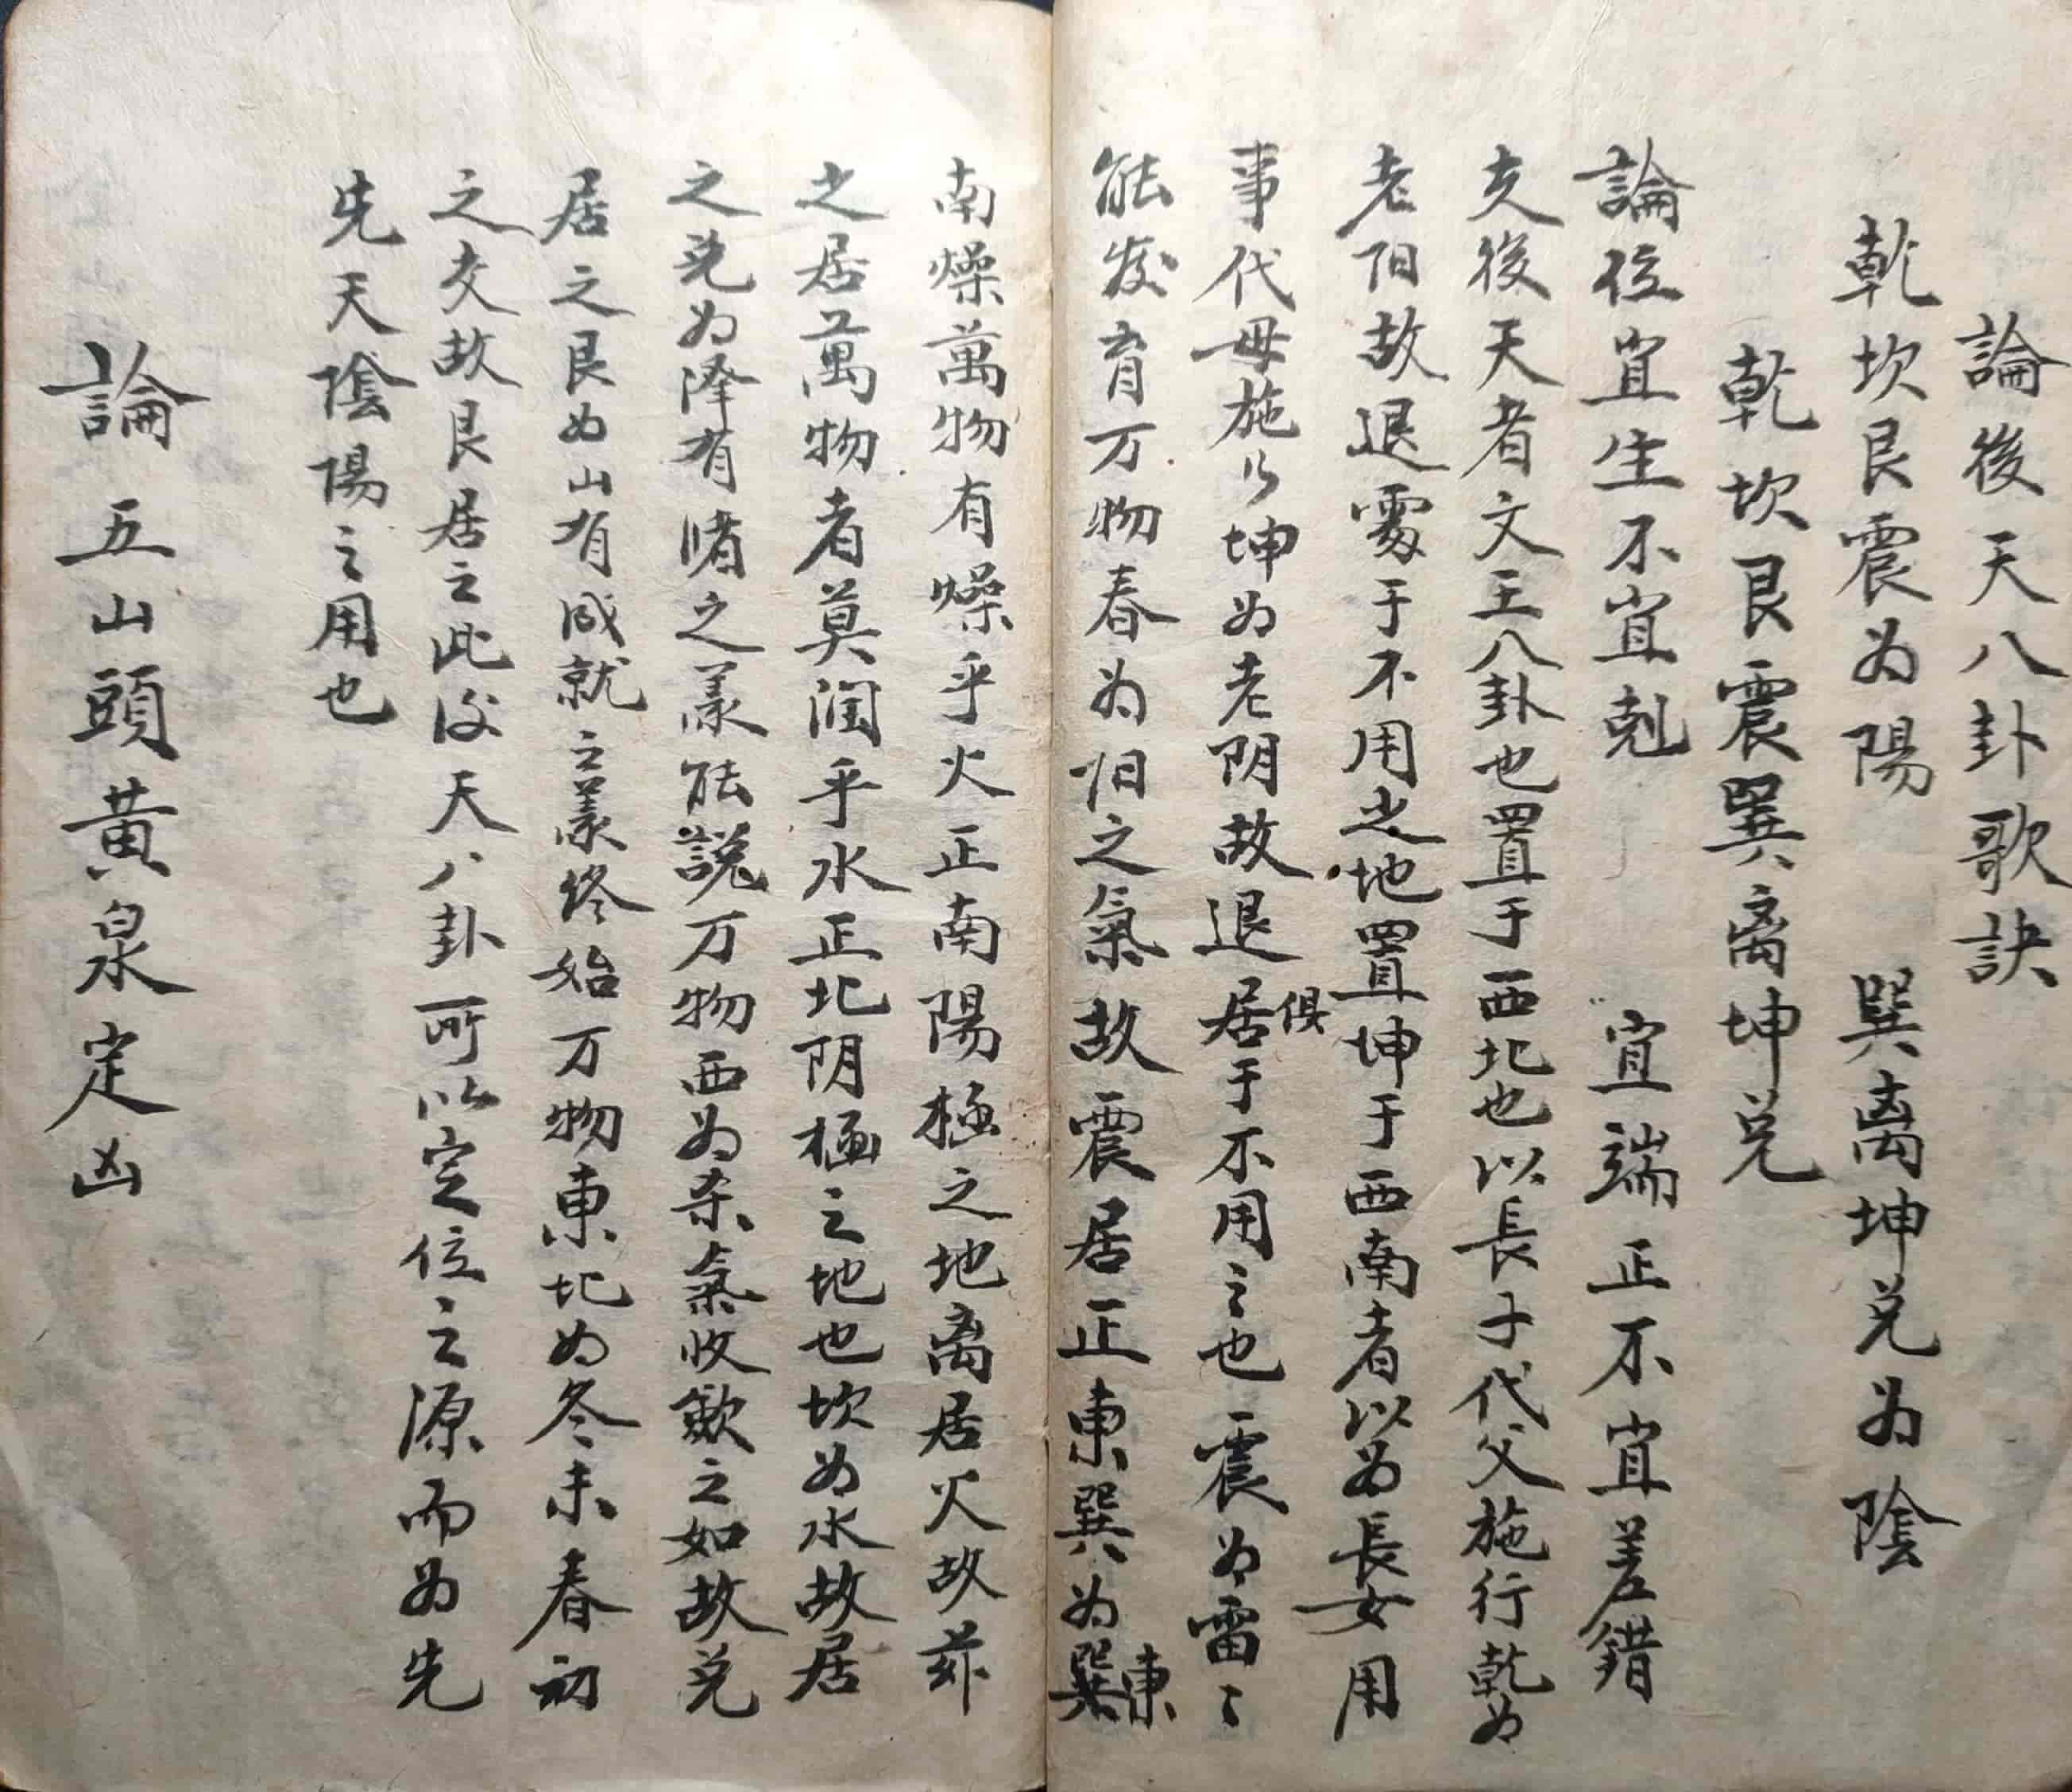 論後天八卦歌訣
乾坎艮震为陽 巽离坤兑为陰
乾坎艮震巽离坤兑
論位宜生不宜剋 宜端正不宜差錯
夫後天者文王八卦也置于西北也以長子代父施行乾为
老阳故退處于不用之地置坤于西南者以为長女用
事代母施行坤为老阴故退居俱于不用之也震为雷〻
能发育万物春为阳之氣故震居正東巽为巽東
南燥萬物有燥乎火正南陽極之地离居火故茲
之居萬物者莫润乎水正北阴極之地也坎为水故居
之兑为降有睹之義能説万物西为杀氣收歛之如故兑
居之艮为山有成就之義终始万物東北为冬末春初
之交故艮居之此後天八卦所以定位之源而为先
先天陰陽之用也
論五山頭黄泉定凶